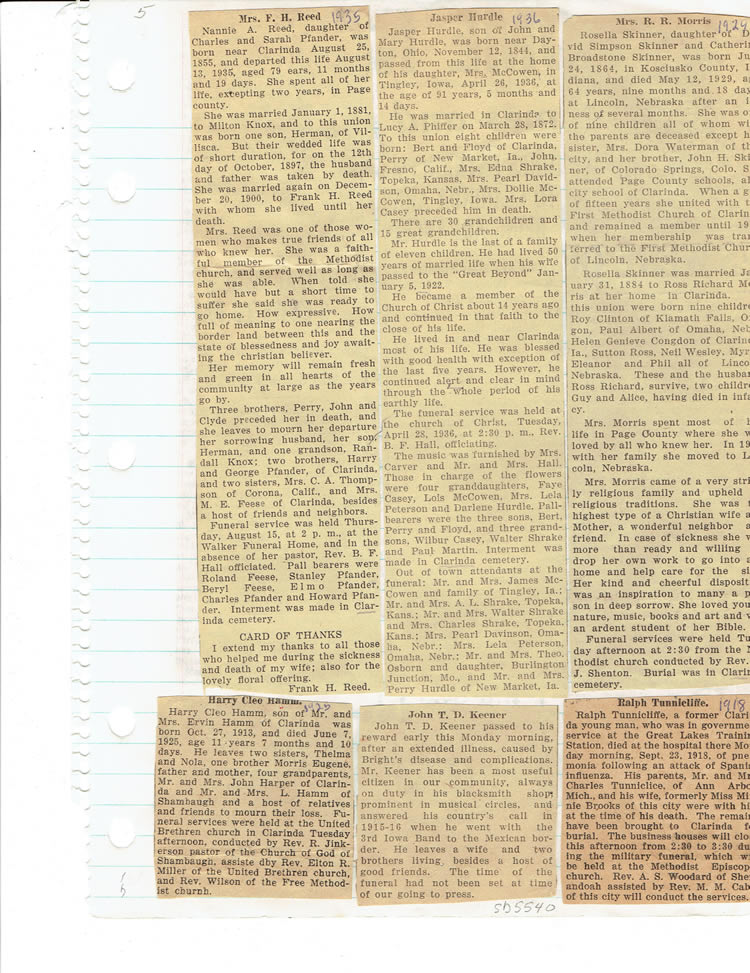 5
Mrs. F. H. Reed 1935
Nannie A. Reed, daughter of
Charles and Sarah Pfander, was
born near Clarinda August 25,
1855, and departed this life August
13, 1935, aged 79 ears, 11 months
and 19 days. She spent all of her
life, excepting two years, in Page
county.
She was married January 1, 1881,
to Milton Knox, and to this union
was born one son, Herman, of Vil-
lisca. But their wedded life was
of short duration, for on the 12th
day of October, 1897, the husband
and father was taken by death.
She was married again on Decem-
ber 20, 1900, to Frank H. Reed
with whom she lived until her
death.
Mrs. Reed was one of those wo-
men who makes true friends of all
who knew her. She was a faith-
ful member of the Methodist
church, and served well as long as
she was able. When told she
would have but a short time to
suffer she said she was ready to
go home. How expressive. How
full of meaning to one nearing the
border land between this and the
state of blessedness and joy await-
ing the christian believer.
Her memory will remain fresh
and green in all hearts of the
community at large as the years
go by.
Three brothers, Perry, John and
Clyde preceded her in death, and
she leaves to mourn her departure
her sorrowing husband, her son,
Herman, and one grandson, Ran-
dall Knox; two brothers, Harry
and George Pfander, of Clarinda,
and two sisters, Mrs. C. A. Thomp-
son of Corona, Calif., and Mrs.
M. E. Feese of Clarinda, besides
a host of friends and neighbors.
Funeral service was held Thurs-
day, August 15, at 2 p. m., at the
Walker Funeral Home, and in the
absence of her pastor, Rev. B. F.
Hall officiated. Pall bearers were
Roland Feese, Stanley Pfander,
Beryl Feese, Elmo Pfander,
Charles Pfander and Howard Pfan-
der. Interment was made in Clar-
inda cemetery.
CARD OF THANKS
I extend my thanks to all those
who helped me during the sickness
and death of my wife; also for the
lovely floral offering.
Frank H. Reed.
Jasper Hurdle 1936
Jasper Hurdle, son of John and
Mary Hurdle, was born near Day-
ton, Ohio, November 12, 1844, and
passed from this life at the home
of his daughter, Mrs. McCowen, in
Tingley, Iowa, April 26, 1936, at
the age of 91 years, 5 months and
14 days.
He was married in Clarinda to
Lucy A. Phiffer on March 28, 1872.
To this union eight children were
born: Bert and Floyd of Clarinda,
Perry of New Market, Ia., John,
Fresno, Calif., Mrs. Edna Shrake,
Topeka, Kansas, Mrs. Pearl David-
son, Omaha, Nebr., Mrs. Dollie Mc-
Cowen, Tingley, Iowa. Mrs. Lora
Casey preceded him in death.
There are 30 grandchildren and
15 great grandchildren.
Mr. Hurdle is the last of a family
of eleven children. He had lived 50
years of married life when his wife
passed to the "Great Beyond" Jan-
uary 5, 1922.
He became a member of the
Church of Christ about 14 years ago
and continued in that faith to the
close of his life.
He lived in and near Clarinda
most of his life. He was blessed
with good health with exception of
the last five years. However, he
continued alert and clear in mind
through the whole period of his
earthly life.
The funeral service was held at
the church of Christ, Tuesday,
April 28, 1936, at 2:30 p. m., Rev.
B. F. Hall, officiating.
The music was furnished by Mrs.
Carver and Mr. and Mrs. Hall.
Those in charge of the flowers
were four granddaughters, Faye
Casey, Lois McCowen, Mrs. Lela
Peterson and Darlene Hurdle. Pall-
bearers were the three sons, Bert,
Perry and Floyd, and three grand-
sons, Wilbur Casey, Walter Shrake
and Paul Martin. Interment was
made in Clarinda cemetery.
Out of town attendants at the
funeral: Mr. and Mrs. James Mc-
Cowen and family of Tingley, Ia.;
Mr. and Mrs. A. L. Shrake, Topeka,
Kans.; Mr. and Mrs. Walter Shrake
and Mrs. Charles Shrake, Topeka,
Kans.; Mrs. Pearl Davinson, Oma-
ha, Nebr.; Mrs. Lela Peterson,
Omaha, Nebr.; Mr. and Mrs. Theo.
Osborn and daughter, Burlington
Junction, Mo., and Mr. and Mrs.
Perry Hurdle of New Market, Ia.
Mrs. R. R. Morris 1929
Rosella Skinner, daughter of D
vid Simpson Skinner and Catheri
Broadstone Skinner, was born Ju
24, 1864, in Kosciusko County, I
diana, and died May 12, 1929, a
64 years, nine months and 18 day
at Lincoln, Nebraska after an i
ness of several months. She was o
of nine children all of whom wi
the parents are deceased except h
sister, Mrs. Dora Waterman of th
city, and her brother, John H. Ski
ner, of Colorado Springs, Colo. S
attended Page County schools, al
city school of Clarinda. When a g
of fifteen years she united with t
First Methodist Church of Clarin
and remained a member until 19
when her membership was tran
ferred to the First Methodist Chur
of Lincoln, Nebraska.
Rosella Skinner was married Ja
uary 31, 1884 to Ross Richard Mo
ris at her home in Clarinda.
this union were born nine childre
Roy Clinton of Klamath Falls, O
gon, Paul Albert of Omaha, Neb
Helen Genieve Congdon of Clarin
Ia., Sutton Ross, Neil Wesley, Myr
Eleanor and Phil all of Linco
Nebraska. These and the husba
Ross Richard, survive, two childre
Guy and Alice, having died in infa
cy.
Mrs. Morris spent most of h
life in Page County where she w
loved by all who knew her. In 19
with her family she moved to L
coln, Nebraska.
Mrs. Morris came of a very stri
ly religious family and upheld
religious traditions. She was
highest type of a Christian wife a
Mother, a wonderful neighbor a
friend. In case of sickness she w
more than ready and willing
drop her own work to go into a
home and help care for the si
Her kind and cheerful disposit
was an inspiration to many a p
son in deep sorrow. She loved you
nature, music, books and art and w
an ardent student of her Bible.
Funeral services were held Tu
day afternoon at 2:30 from the M
thodist church conducted by Rev.
J. Shenton. Burial was in Clarin
cemetery.
Harry Cleo Hamm. 1925
Harry Cleo Hamm, son of Mr. and
Mrs. Ervin Hamm of Clarinda was
born Oct. 27, 1913, and died June 7,
1925, age 11 years 7 months and 10
days. He leaves two sisters, Thelma
and Nola, one brother Morris Eugene,
father and mother, four grandparents,
Mr. and Mrs. John Harper of Clarin-
da and Mr. and Mrs. L. Hamm of
Shambaugh and a host of relatives
and friends to mourn their loss. Fu-
neral services were held at the United
Brethren church in Clarinda Tuesday
afternoon, conducted by Rev. R. Jink-
erson pastor of the Church of God of
Shambaugh, assiste dby Rev. Elton R.
Miller of the United Brethren church,
and Rev. Wilson of the Free Method-
ist church.
John T. D. Keener
John T. D. Keener passed to his
reward early this Monday morning,
after an extended illness, caused by
Bright's disease and complications.
Mr. Keener has been a most useful
citizen in our community, always
on duty in his blacksmith shop
prominent in musical circles, and
answered his country's call in
1915-16 when he went with the
3rd Iowa Band to the Mexican bor-
der. He leaves a wife and two
brothers living, besides a host of
good friends. The time of the
funeral had not been set at time
of our going to press.
Ralph Tunnicliffe. 1918
Ralph Tunnicliffe, a former Clari
da young man, who was in governme
service at the Great Lakes Trainin
Station, died at the hospital there Mo
day morning, Sept. 23, 1918, of pne
monia following an attack of Spani
influenza. His parents, Mr. and Mr
Charles Tunniclice, of Ann Arbo
Mich., and his wife, formerly Miss Mi
nie Brooks of this city were with hi
at the time of his death. The remain
have been brought to Clarinda fo
burial. The business houses will clo
this afternoon from 2:30 to 3:30 du
ing the military funeral, which wi
be held at the Methodist Episcop
church. Rev. A. S. Woodard of She
andoah assisted by Rev. M. M. Cab
of this city will conduct the services.
SD5540